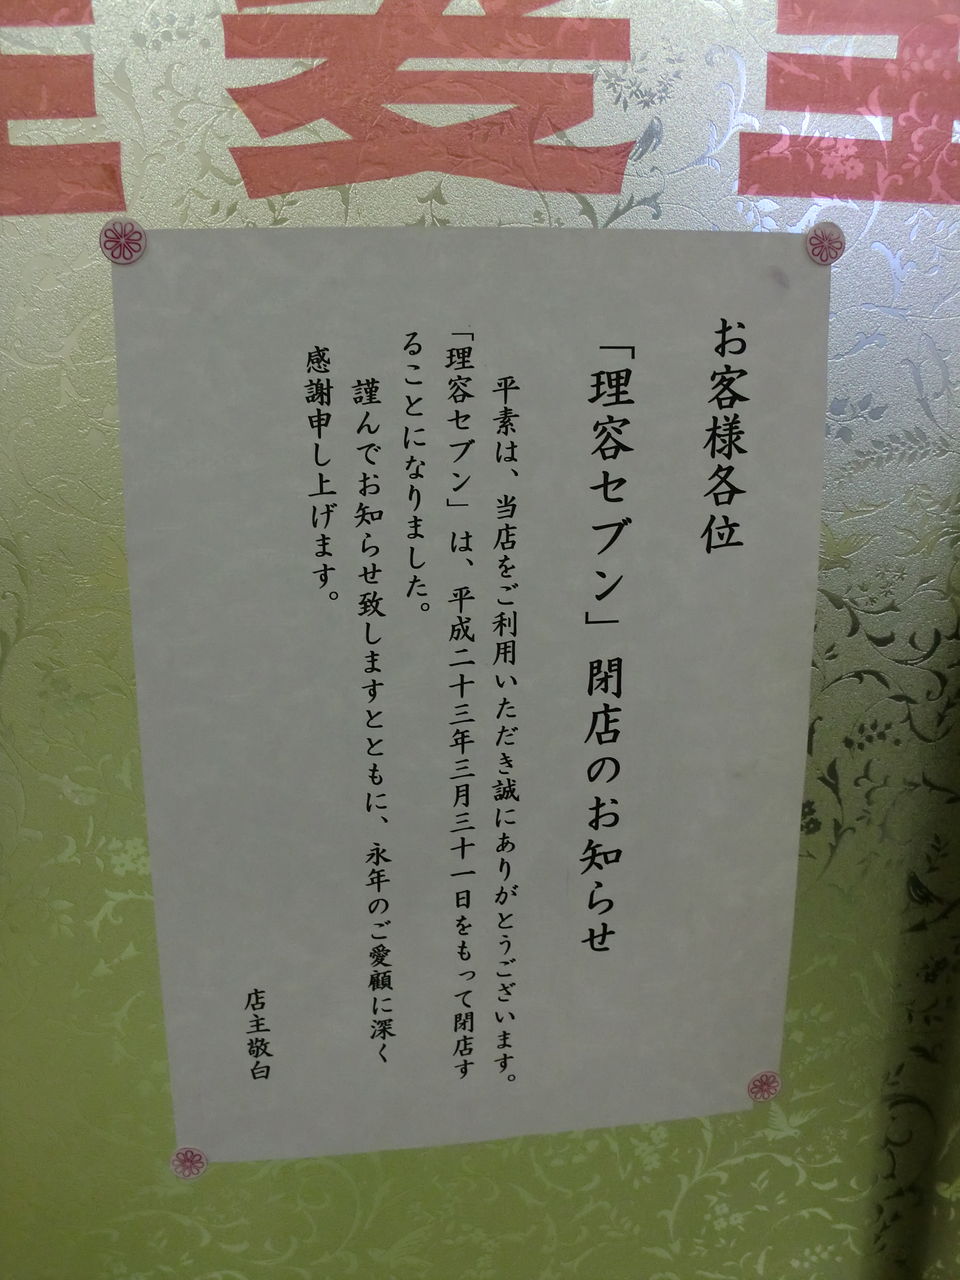 お客様各位
「理容セブン」閉店のお知らせ
平素は、当店をご利用いただき誠にありがとうございます。
「理容セブン」は、平成二十三年三月三十一日をもって閉店す
ることになりました。
謹んでお知らせ致しますとともに、永年のご愛顧に深く
感謝申し上げます。
店主敬白